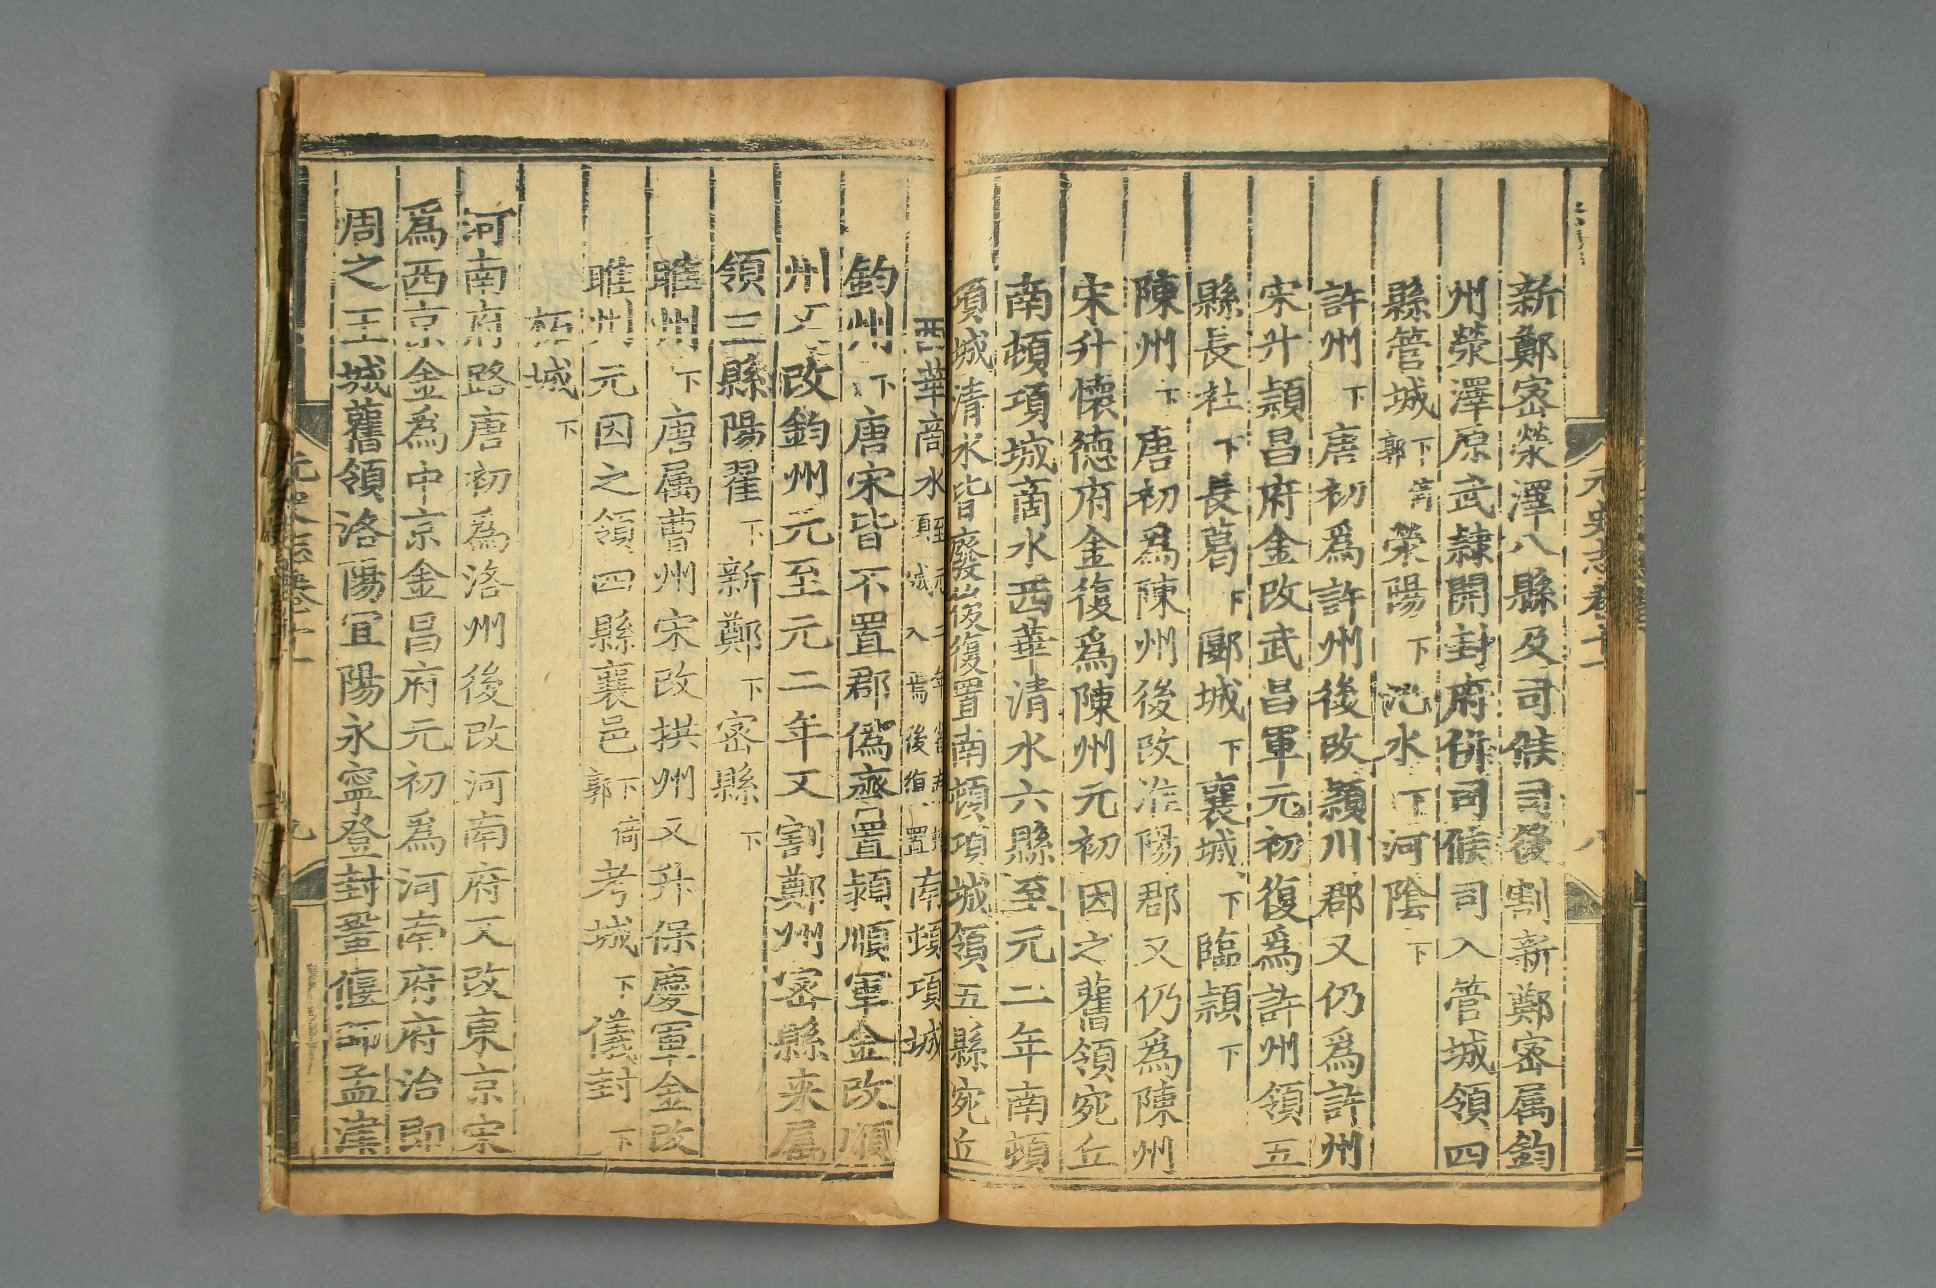 元史志卷十一
八
新鄭密滎澤八縣及司候司後割新鄭密属鈞
州滎澤原武隷開封府併司候司入管城領四
縣管城下倚郭滎陽下汜水下河陰下
許州下唐初爲許州後改潁川郡又仍爲許州
宋升潁昌府金改武昌軍元初復爲許州領五
縣長社下長葛下郾城下襄城下臨潁下
陳州下唐初爲陳州後改淮陽郡又仍爲陳州
宋升懷德府金復爲陳州元初因之舊領宛丘
南頓項城商水西華清水六縣至元二年南頓
項城清水皆廢後復置南頓項城領五縣宛丘
西華商水至元二年省南頓項城入焉後復置南頓項城
鈞州下唐宋皆不置郡僞齊置潁順軍金改順
州又改鈞州元至元二年又割鄭州密縣来属
領三縣陽翟下新鄭下密縣下
睢州下唐属曹州宋改拱州又升保慶軍金改
睢州元因之領四縣襄邑下倚郭考城下儀封下
柘城下
河南府路唐初爲洛州後改河南府又改東京宋
爲西京金爲中京金昌府元初爲河南府府治即
周之王城舊領洛陽宜陽永寧登封鞏偃師孟津
元史志卷十一
九